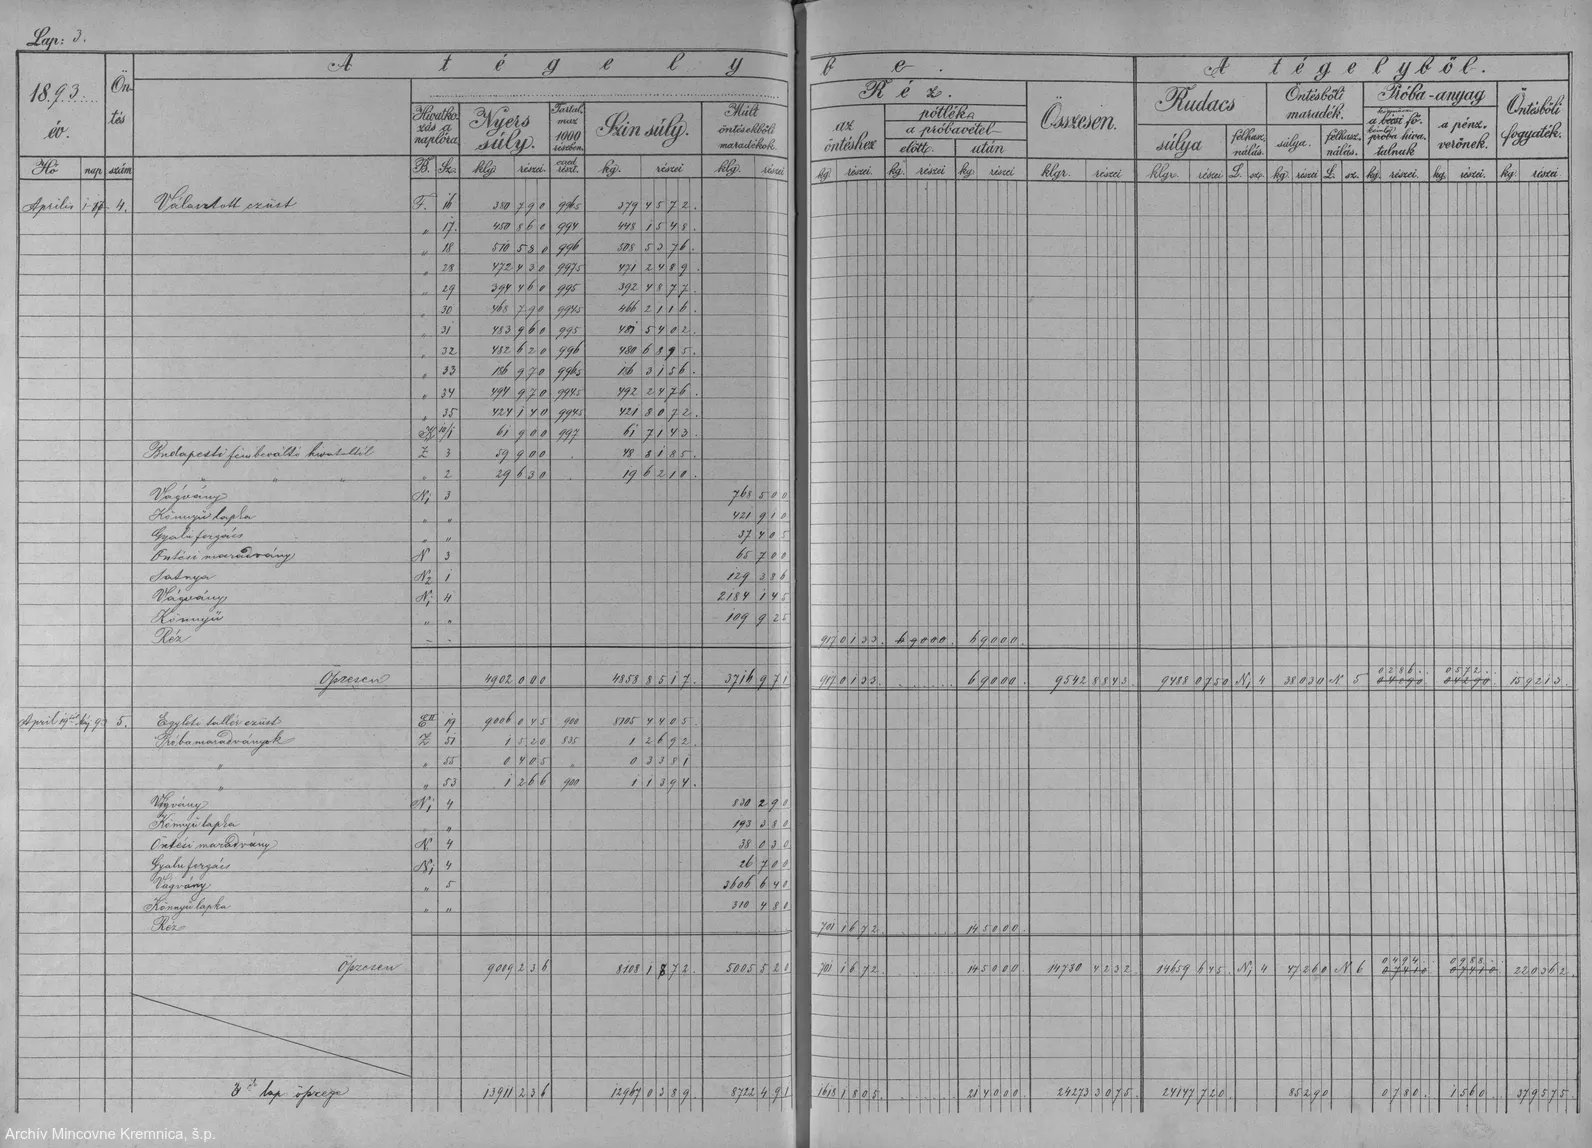 Lap: 3.
A tégely be. A tégelyből.
1893. év. Öntés
Réz.
Hivatkozás a naplóra. Nyers súly. Tartalmaz 1000 részben. Szín súly. Múlt öntésekbőli maradékok. az öntéshez pótlék a próbavétel- előtt. után Összesen. Rudacs súlya felhasználás. Öntésbőli maradék. súlya. felhasználás. Próba-anyag a pénzverőnek. Öntésbőli fogyaték.
Hó nap szám B. Sz. klg részei ezred részt. kg. részei klg. részei kg. részei kg. részei kg. részei klgr. részei klgr. részei L. sz. kg részei L. sz. kg. részei. kg. részei. kg. részei.
Április 4. Választott ezüst F. 16 380 790 9965 379 4572.
" 17. 450 860 994 448 1548.
" 18 510 580 996 508 5376.
" 28 472 430 9975 471 2489.
" 29 394 460 995 392 4877.
" 30 468 790 9945 466 2116.
" 31 483 960 995 481 5402.
" 32 482 620 996 480 6895.
" 33 186 970 9965 186 3156.
" 34 494 970 9945 492 2476.
" 35 424 140 9945 421 8072.
K 10/1 61 900 997 61 7143.
Budapesti fémbeváltó hivataltól Z 3 59 900 . 48 8185.
" " " " 2 29 630 . 19 6210.
Vágvány N1 3 768 500
Könnyű lapka " " 421 910
Gyalu forgács " " 37 405
Öntési maradvány N 3 65 700
Satnya N2 1 129 386
Vágvány N1 4 2184 145
Könnyű " " 109 925
Réz - - 917 0133. 69000 69000.
Öszesen 4902 000 4858 8517. 3716 971 917 0133. 69000. 9542 8843. 9488 0750 N1 4 38030 N 5 0286. 04290 0572. 04290 159213.
5. Egyleti tallér ezüst E II 19 9006 045 900 8105 4405.
Próbamaradványok Z 51 1 520 835 1 2692.
" " 55 0 405 " 0 3381
" " 53 1 266 900 1 1394.
Vágvány N1 4 830 290
Könnyű lapka " " 193 380
Öntési maradvány N 4 38 030
Gyalu forgács N1 4 26 700
Vágvány " 5 3606 640
Könnyű lapka " " 310 480
Réz 701 1672. 145000.
Öszesen 9009 236 8108 1872. 5005 520 701 1672. 145000. 14730 4232. 14659 645. N1 4 47260 N 6 0494. 07410 0988. 07410 220362.
3ik lap öszege 13911 236 12967 0389. 8722 491 1618 1805. 214000. 24273 3075. 24147 720. 85290 0780. 1560. 379575.
Archív Mincovne Kremnica, š.p.